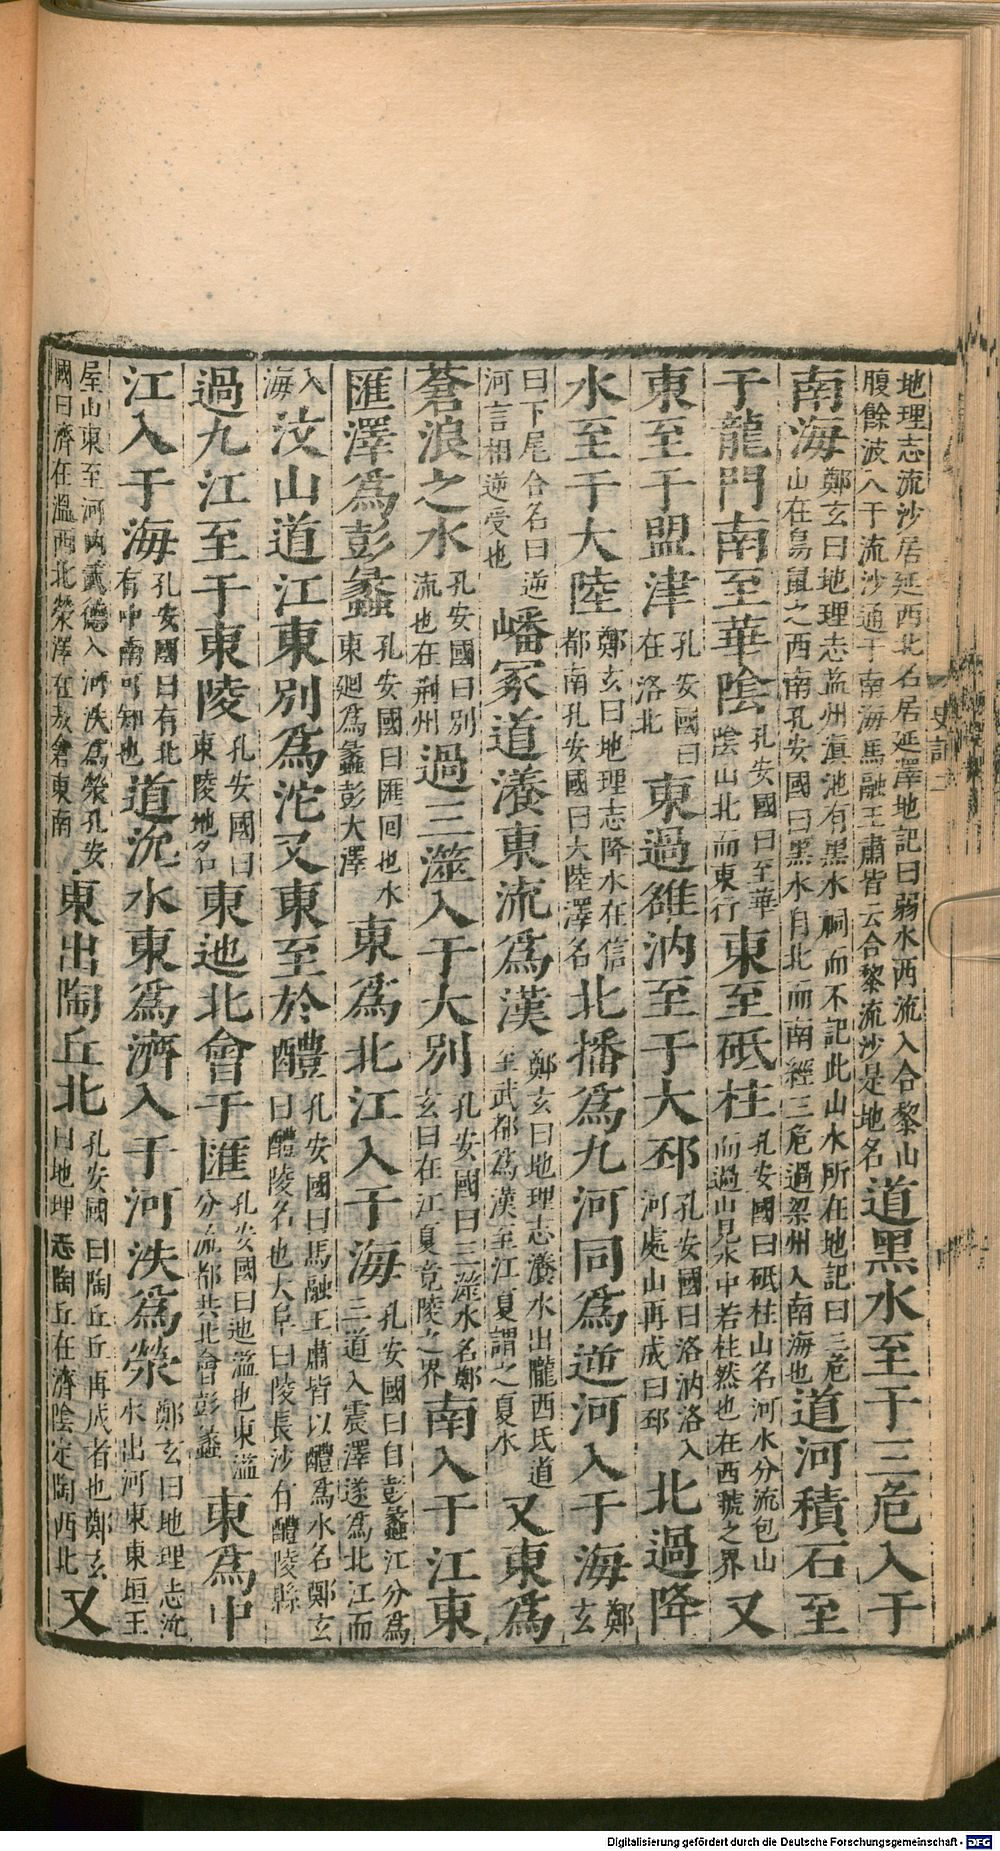 地理志流沙居延西北名居延澤地記曰弱水西流入合黎山腹餘波入于流沙通于南海馬融王肅皆云合黎流沙是地名道黑水至于三危入于
南海鄭玄曰地理志益州滇池有黑水祠而不記此山水所在地記曰三危山在鳥鼠之西南孔安國曰黑水自北而南經三危過梁州入南海也道河積石至
于龍門南至華陰孔安國曰至華陰山北而東行東至砥柱孔安國曰砥柱山名河水分流包山而過山見水中若柱然也在西虢之界又
東至于盟津孔安國曰在洛北東過雒汭至于大邳孔安國曰洛汭洛入河處山再成曰邳北過降
水至于大陸鄭玄曰地理志降水在信都南孔安國曰大陸澤名北播為九河同為逆河入于海鄭玄
曰下尾合名曰逆河言相逆受也嶓冢道瀁東流為漢鄭玄曰地理志瀁水出隴西氐道至武都為漢至江夏謂之夏水又東為
蒼浪之水孔安國曰別流也在荊州過三澨入于大別孔安國曰三澨水名鄭玄曰在江夏竟陵之界南入于江東
匯澤為彭蠡孔安國曰匯回也水東廻為蠡彭大澤東為北江入于海孔安國曰自彭蠡江分為三道入震澤遂為北江而
入海汶山道江東別為沱又東至於醴孔安國曰馬融王肅皆以醴為水名鄭玄曰醴陵名也大阜曰陵長沙有醴陵縣
過九江至于東陵孔安國曰東陵地名東迆北會于匯孔安國曰迆溢也東溢分流都共北會彭蠡東為中
江入于海孔安國曰有北有中南可知也道沇水東為濟入于河泆為滎鄭玄曰地理志沇水出河東東垣王
屋山東至河內武德入河泆為滎孔安國曰濟在溫西北滎澤在敖倉東南東出陶丘北孔安國曰陶丘丘再成者也鄭玄曰地理志陶丘在濟陰定陶西北又
史記二
Digitalisierung gefördert durch die Deutsche Forschungsgemeinschaft - DFG